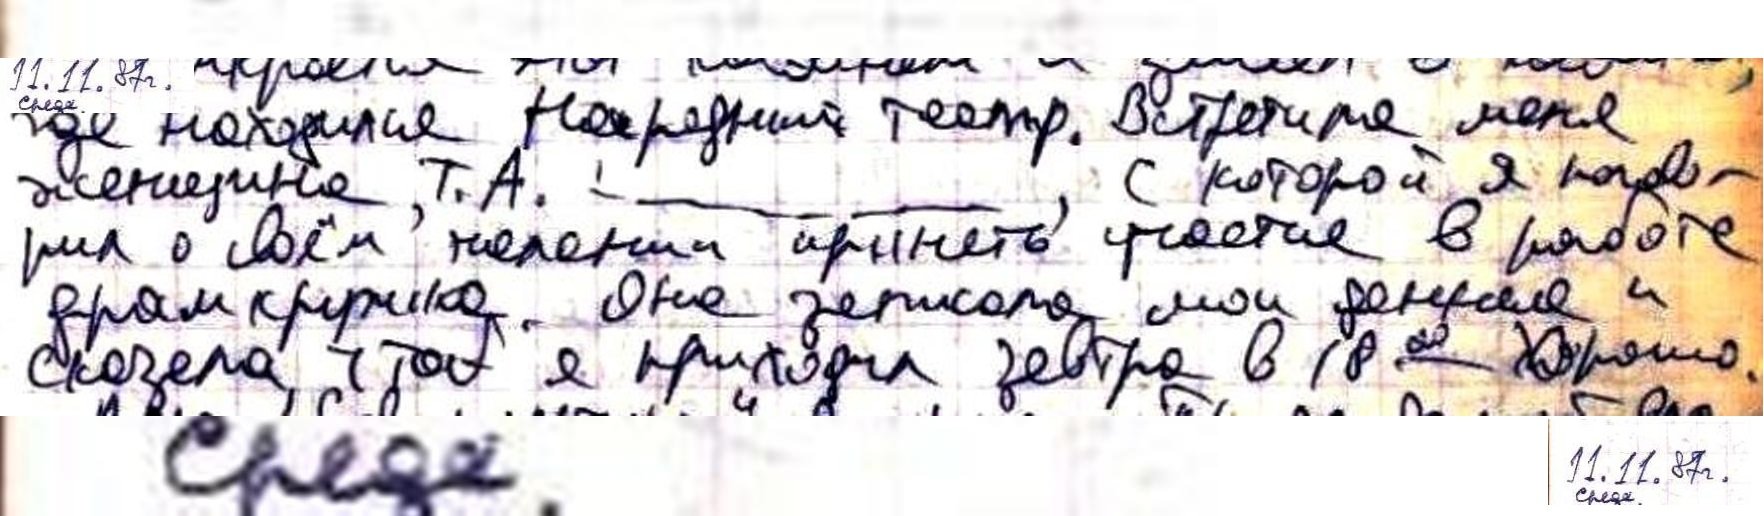 11.11.87г.
Среда.
где находился Народный театр. Встретила меня
женщина, Т.А. , с которой я гово-
рил о своём желании принять участие в работе
драмкружка. Она записала мои данные и
сказала, чтоб я приходил завтра в 18 00 Хорошо.
Среда.
11.11.87г.
Среда.